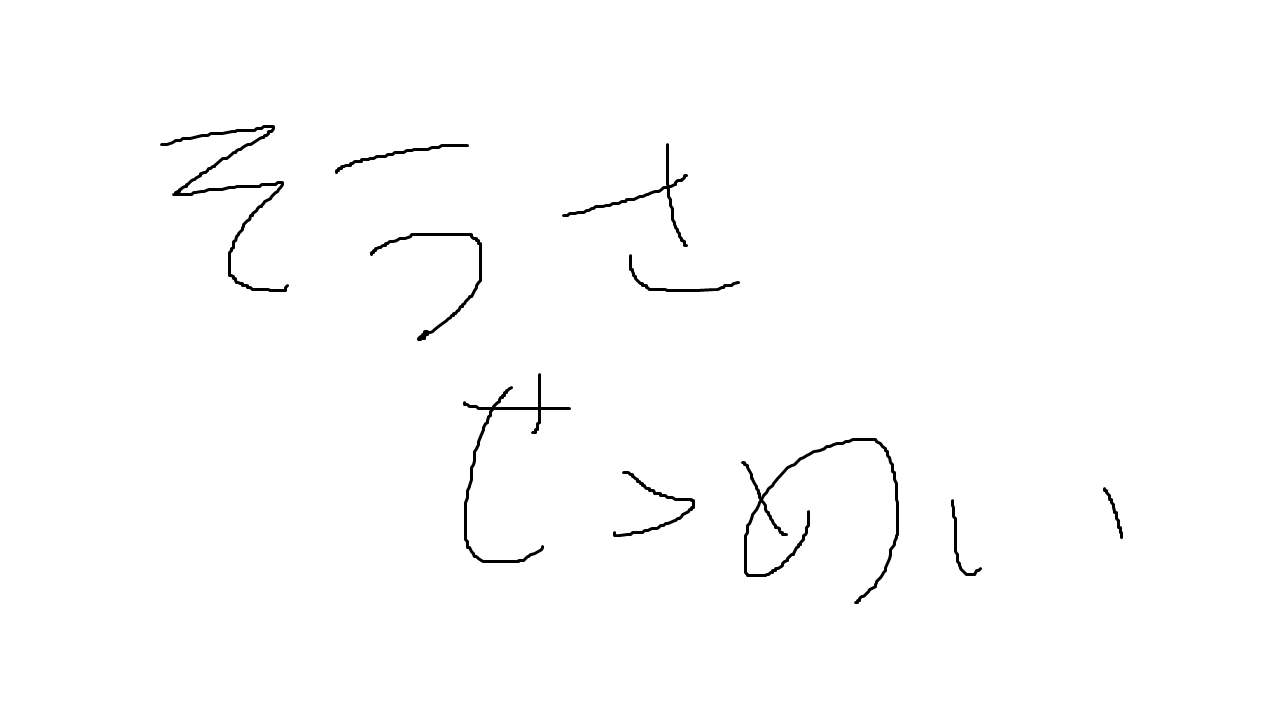 そうさ
せつめい